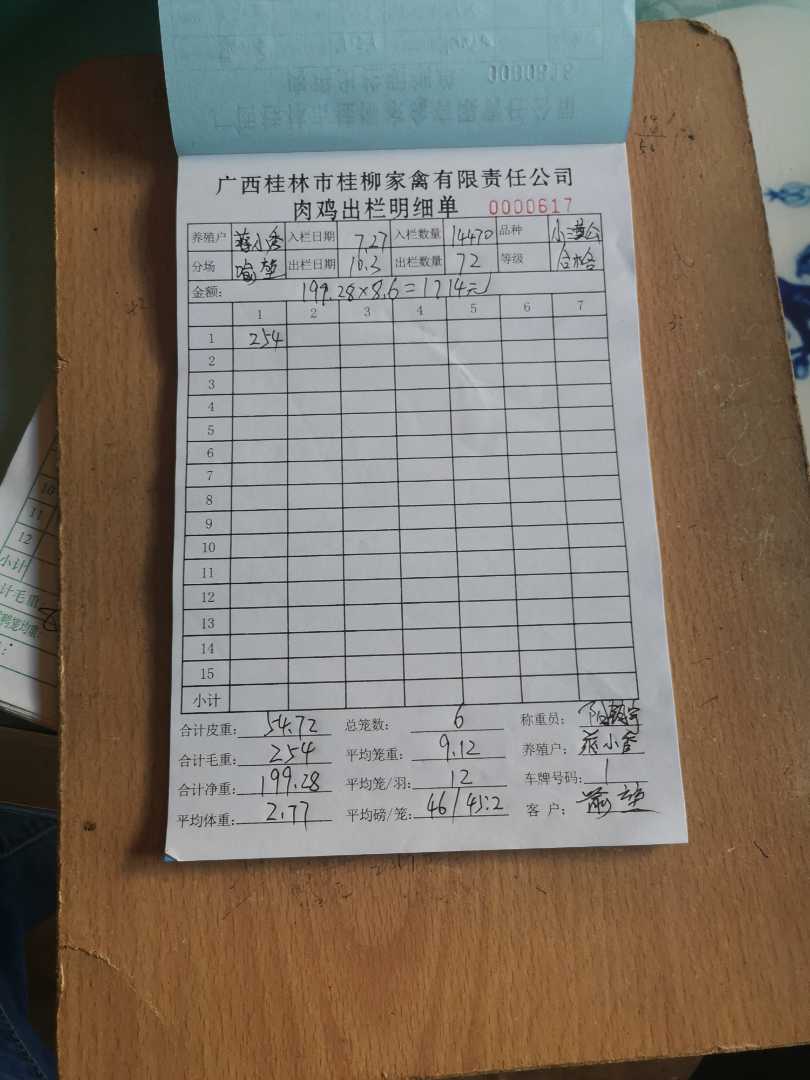 广西桂林市桂柳家禽有限责任公司
肉鸡出栏明细单 0000617
养殖户 蒋小香 入栏日期 7.27 入栏数量 14470 品种
分场 出栏日期 10.3 出栏数量 72 等级 合格
金额: 199.28×8.6=1714元
1 2 3 4 5 6 7
1 254
2
3
4
5
6
7
8
9
10
11
12
13
14
15
小计
合计皮重: 54.72 总笼数: 6 称重员:
合计毛重: 254 平均笼重: 9.12 养殖户: 蒋小香
合计净重: 199.28 平均笼/羽: 12 车牌号码: 1
平均体重: 2.77 平均磅/笼: 46/45:2 客 户:
10
11
12
小计
计毛重